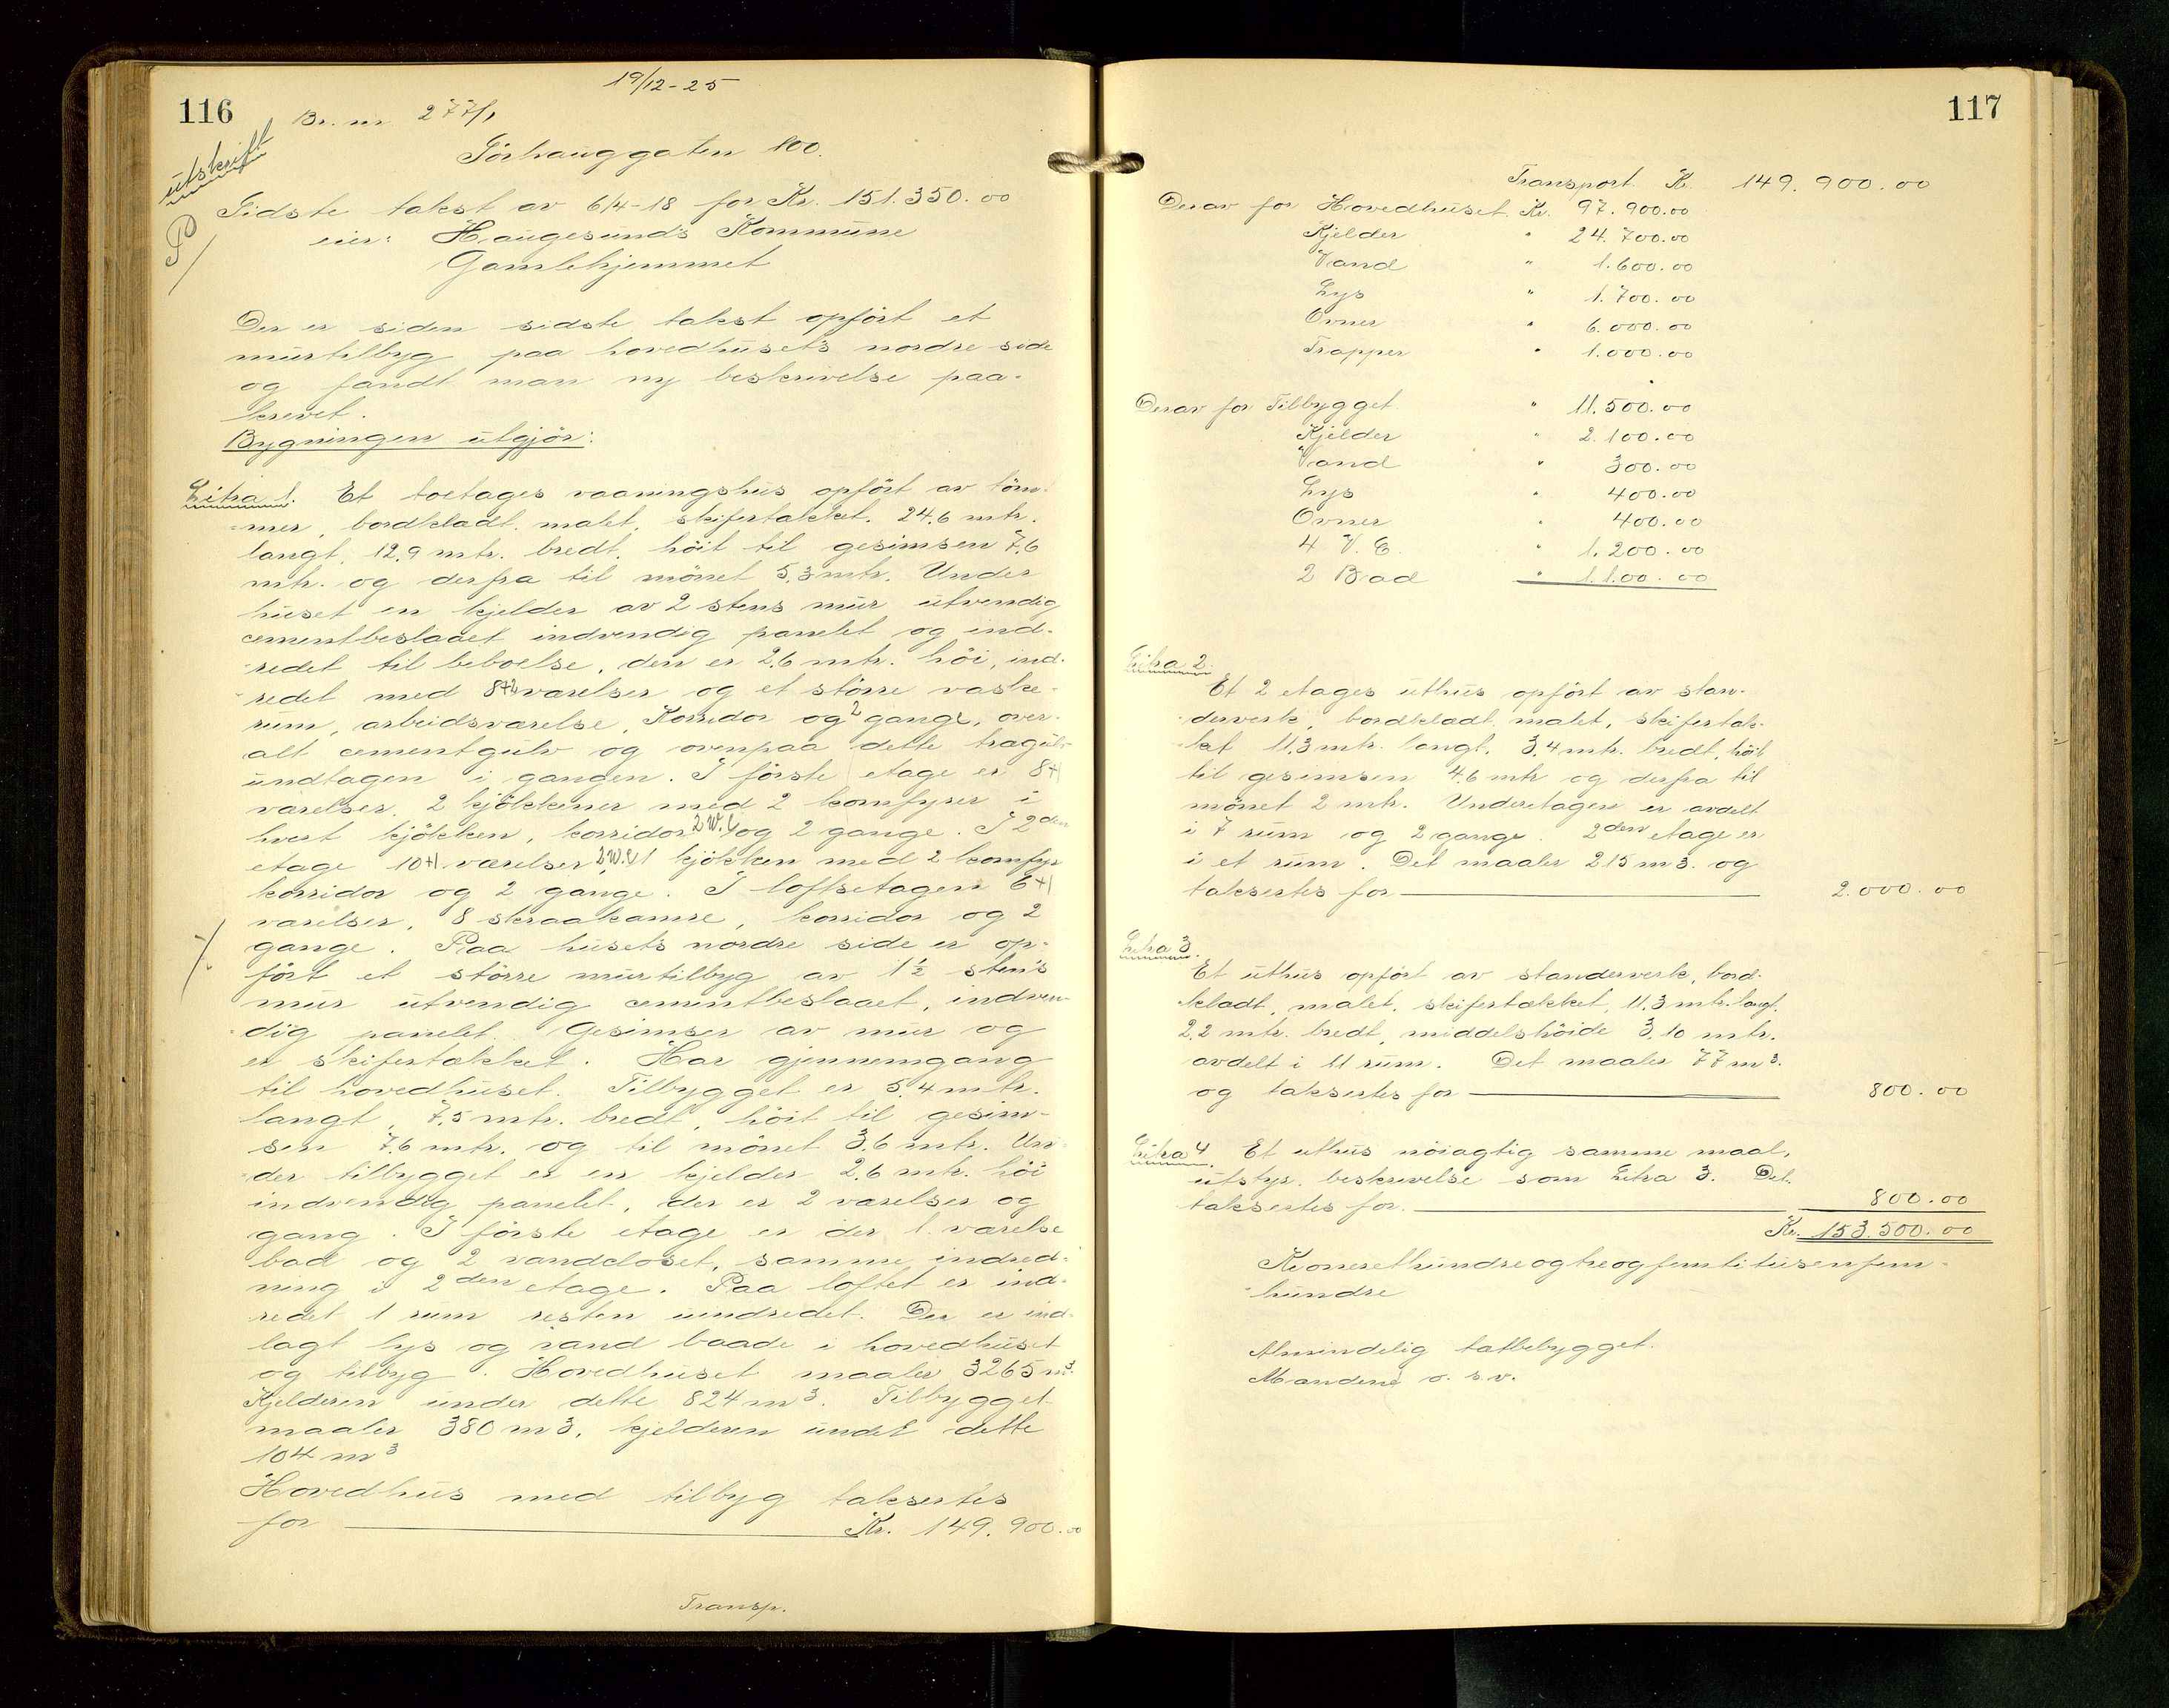 116
19/12-25
Br. nr 277/1
utskrift
Sörhauggaten 100.
Sidste takst av 6/4-18 for Kr. 151.350.00
eier: Haugesunds Kommune
Gamlehjemmet
Der er siden sidste takst opfört et
murtilbyg paa hovedhusets nordre side
og fandt man ny beskrivelse paa-
krevet.
Bygningen utgjör:
Litra 1. Et toetages vaaningshus opfört av töm-
mer, bordkladt, malet, skifertakket. 24.6 mtr.
langt, 12.9 mtr. bredt, höit til gesimsen 7.6
mtr. og derfra til mönet 5.3 mtr. Under
huset en kjelder av 2 stens mur utvendig
cementbeslaaet indvendig panelet og ind-
redet til beboelse, den er 2.6 mtr. höi, ind-
redet med 8+2 værelser og et större vaske-
rum, arbeidsværelse, Korridor og 2 gange, over-
alt cementgulv og ovenpaa dette tragulv
undtagen i gangen. I förste etage er 8+1
værelser, 2 kjökkener med 2 komfyrer i
hvert kjökken, korridor 2 W.C og 2 gange. I 2den
etage 10+1 værelser, 2 W.C 1 kjökken med 2 komfyr
korridor og 2 gange. I loftsetagen 6+1
værelser, 8 skraakamre, korridor og 2
gange. Paa husets nordre side er op-
fört et större murtilbyg av 1½ stens
mur utvendig cementbeslaaet, indven-
dig panelet. Gesimser av mur og
er skifertækket. Har gjennemgang
til hovedhuset. Tilbygget er 5.4 mtr.
langt, 7.5 mtr. bredt, höit til gesim-
sen 7.6 mtr. og til mönet 3.6 mtr. Un-
der tilbygget er en kjelder 2.6 mtr. höi
indvendig panelet, der er 2 værelser og
gang. I förste etage er der 1 værelse
bad og 2 vandcloset, samme indred-
ning i 2den etage. Paa loftet er ind-
redet 1 rum resten uindredet. Der er ind-
lagt lys og vand baade i hovedhuset
og tilbyg. Hovedhuset maaler 3265 m3.
Kjelderen under dette 824 m3. Tilbygget
maaler 380 m3, kjelderen undet dette
104 m3
Hovedhus med tilbyg taksertes
for Kr. 149.900.00
Transp.
117
Transport Kr. 149.900.00
Derav for Hovedhuset Kr. 97.900.00
Kjelder " 24.700.00
Vand " 1.600.00
Lys " 1.700.00
Ovner " 6.000.00
Trapper " 1.000.00
Derav for Tilbygget " 11.500.00
Kjelder " 2.100.00
Vand " 300.00
Lys " 400.00
Ovner " 400.00
4 V.C. " 1.200.00
2 Bad " 1.100.00
Litra 2.
Et 2 etages uthus opfört av stan-
derverk, bordkladt, malet, skifertak-
ket 11.3 mtr. langt, 3.4 mtr. bredt, höit
til gesimsen 4.6 mtr og derfra til
mönet 2 mtr. Underetagen er avdelt
i 7 rum og 2 gange. 2den etage er
i et rum. Det maaler 215 m3. og
taksertes for 2.000.00
Litra 3.
Et uthus opfört av standerverk, bord-
kladt, malet, skifertækket, 11.3 mtr. langt.
2.2 mtr. bredt, middelshöide 3.10 mtr.
avdelt i 11 rum. Det maaler 77 m3.
og taksertes for 800.00
Litra 4. Et uthus nöiagtig samme maal,
utstyr, beskrivelse som Litra 3. Det
taksertes for. 800.00
Kr. 153.500.00
Kroneretthundreogtreogfemtitusenfem-
hundre
Almindelig tætbebygget.
Mandene o.s.v.